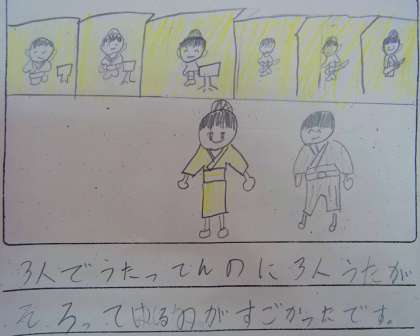 3人でうたってんのに3人うたが
そろってはるのがすごかったです。